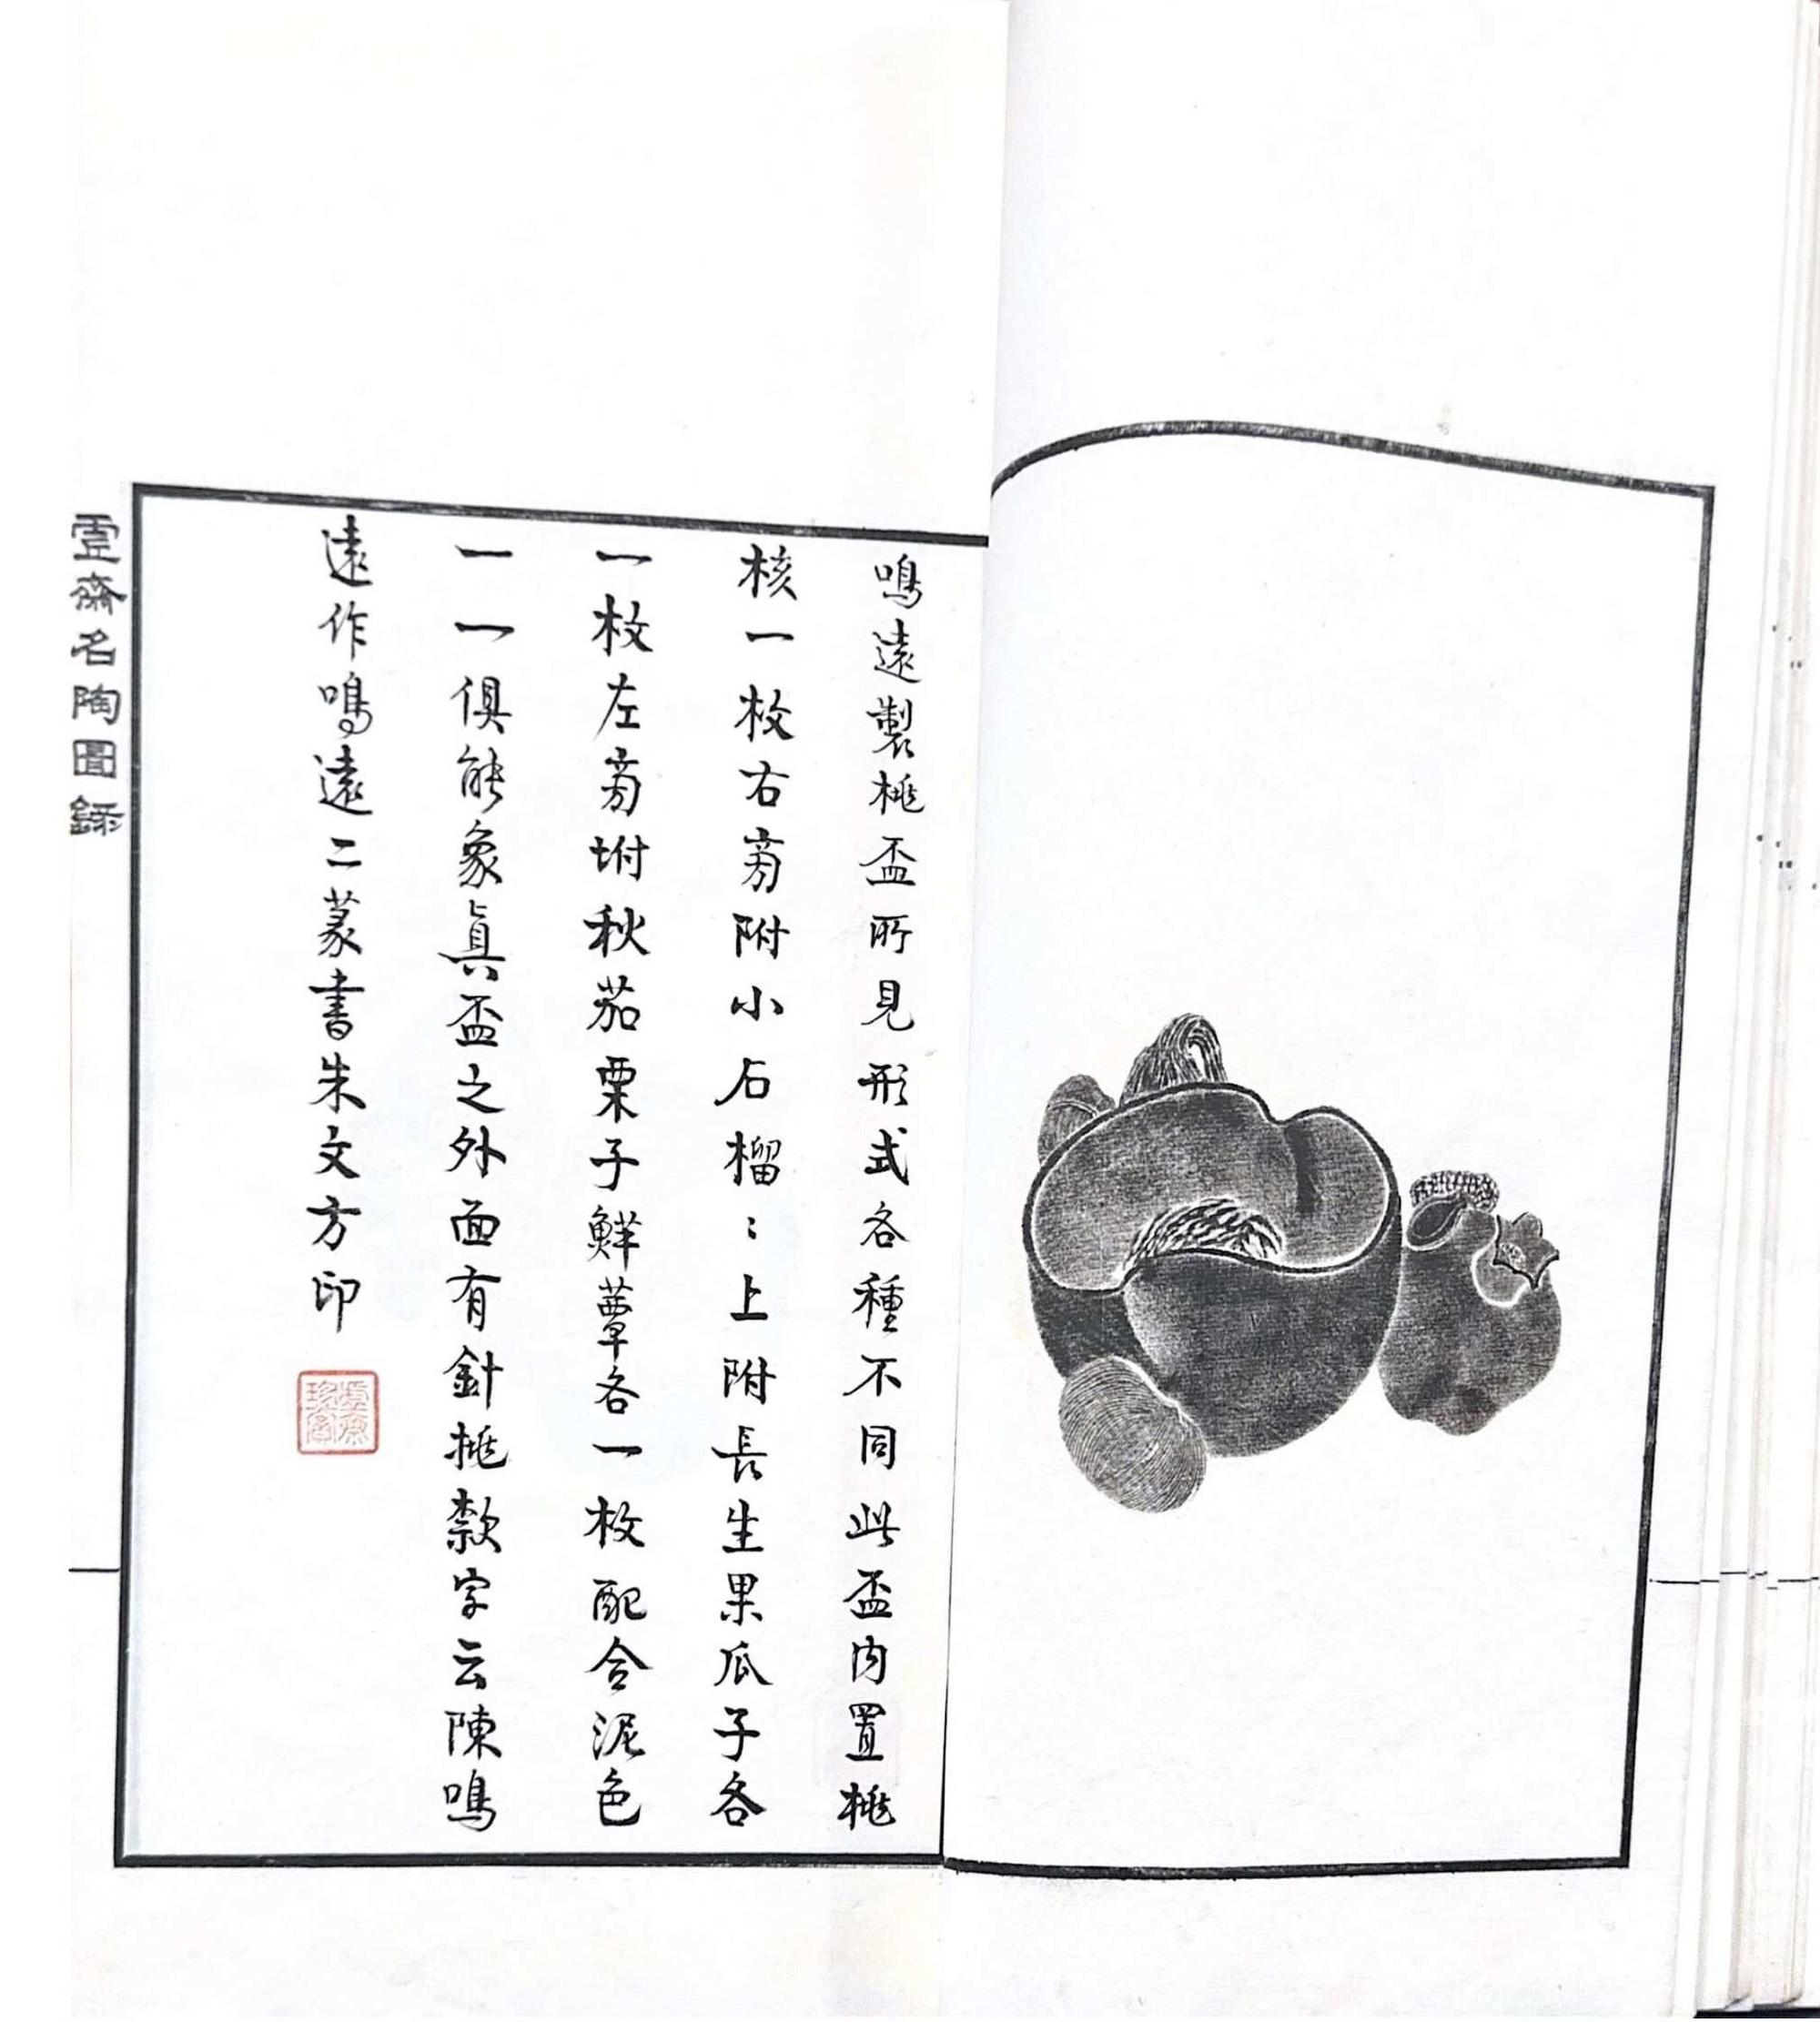 鳴遠製桃盃所見形式各種不同此盃內置桃
核一枚右旁附小石榴〻上附長生果瓜子各
一枚左旁坿秋茄栗子鮮蕈各一枚配合泥色
一一俱能象眞盃之外面有針挑款字云陳鳴
遠作鳴遠二篆書朱文方印
壺齋名陶圖錄